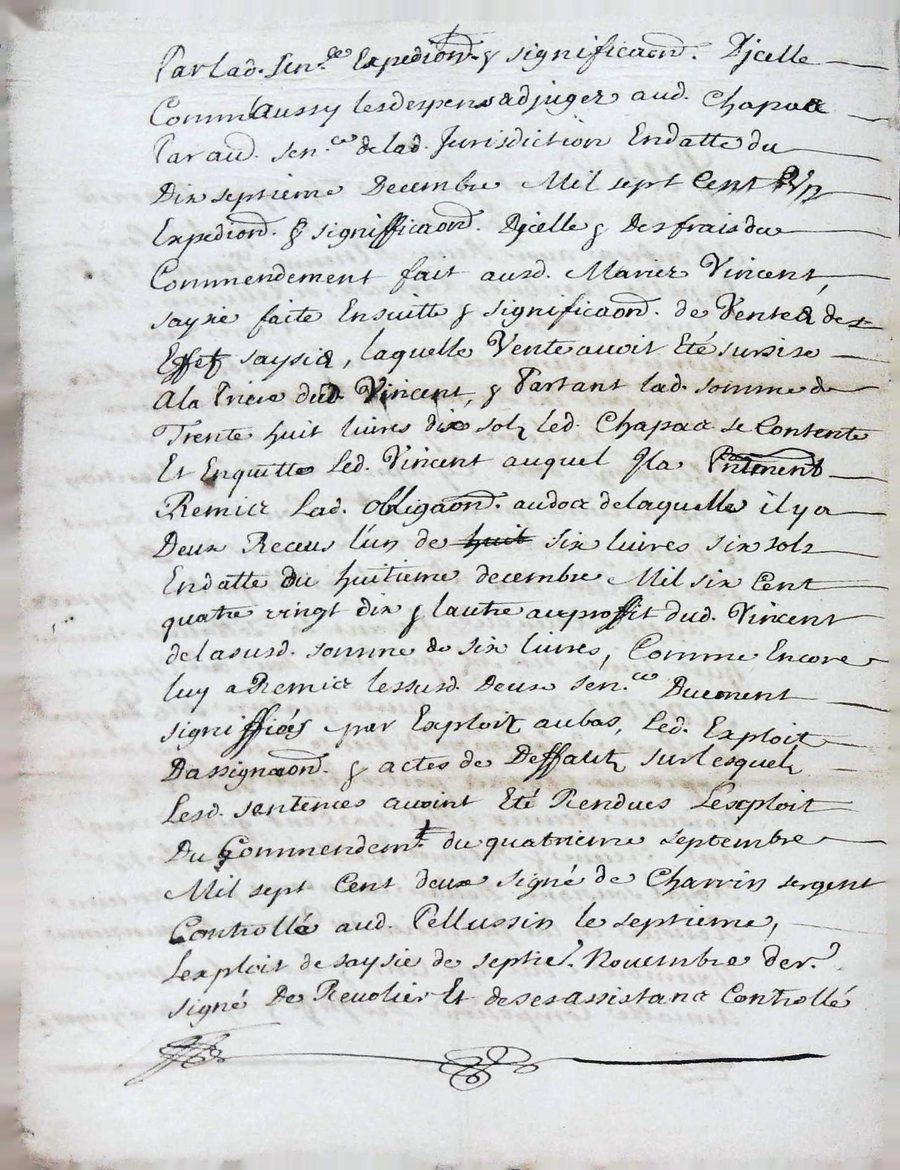 Par lad. sen.ce Expediond. & significaond. Djcelle
Comm'Aussy les despens adjuges aud. Chapaa
Par aud. sen.ce de lad. Jurisdiction En datte du
Dix septieme Decembre Mil sept Cent
Expediond. & significaond. Djcelle & Des frais du
Commendement fait ausd. Maries Vincent,
saysie faite En suitte & significaond. de Ventes des
Effets saysis, laquelle Vente avoit Eté sursise
A la Priere dud. Vincent, & Partant lad. somme de
Trente huit livres dix solz led. Chapaa se Contente
Et En quitte Led. Vincent auquel Jl a Pntment
Remis Lad. obligaond. au dos de laquelle il y a
Deux Receus l'un de huit six livres six solz
En datte du huitieme decembre Mil six Cent
quatre vingt dix & l'autre au proffit dud. Vincent
de la susd. somme de six livres, Comme Encore
luy a Remis les susd. Deux sen.ces Duement
signiffiés par Exploit au bas, Led. Exploit
Dassignaond. & actes de Deffautz sur lesquelz
Lesd. sentences avoint Eté Rendues L'exploit
Du Commendem.t du quatrieme septembre
Mil sept Cent deux signé de Charvin sergent
Controllé aud. Pellussin le septieme,
L'exploit de saysie de septie.e Novembre der.r
signé De Revolier Et de ses assistans Controllé